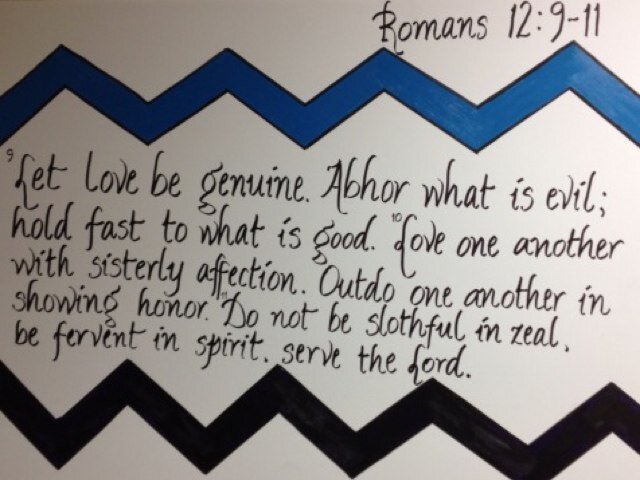 Romans 12:9-11
9 Let love be genuine. Abhor what is evil;
hold fast to what is good. 10 Love one another
with sisterly affection. Outdo one another in
showing honor. 11 Do not be slothful in zeal,
be fervent in spirit, serve the Lord.